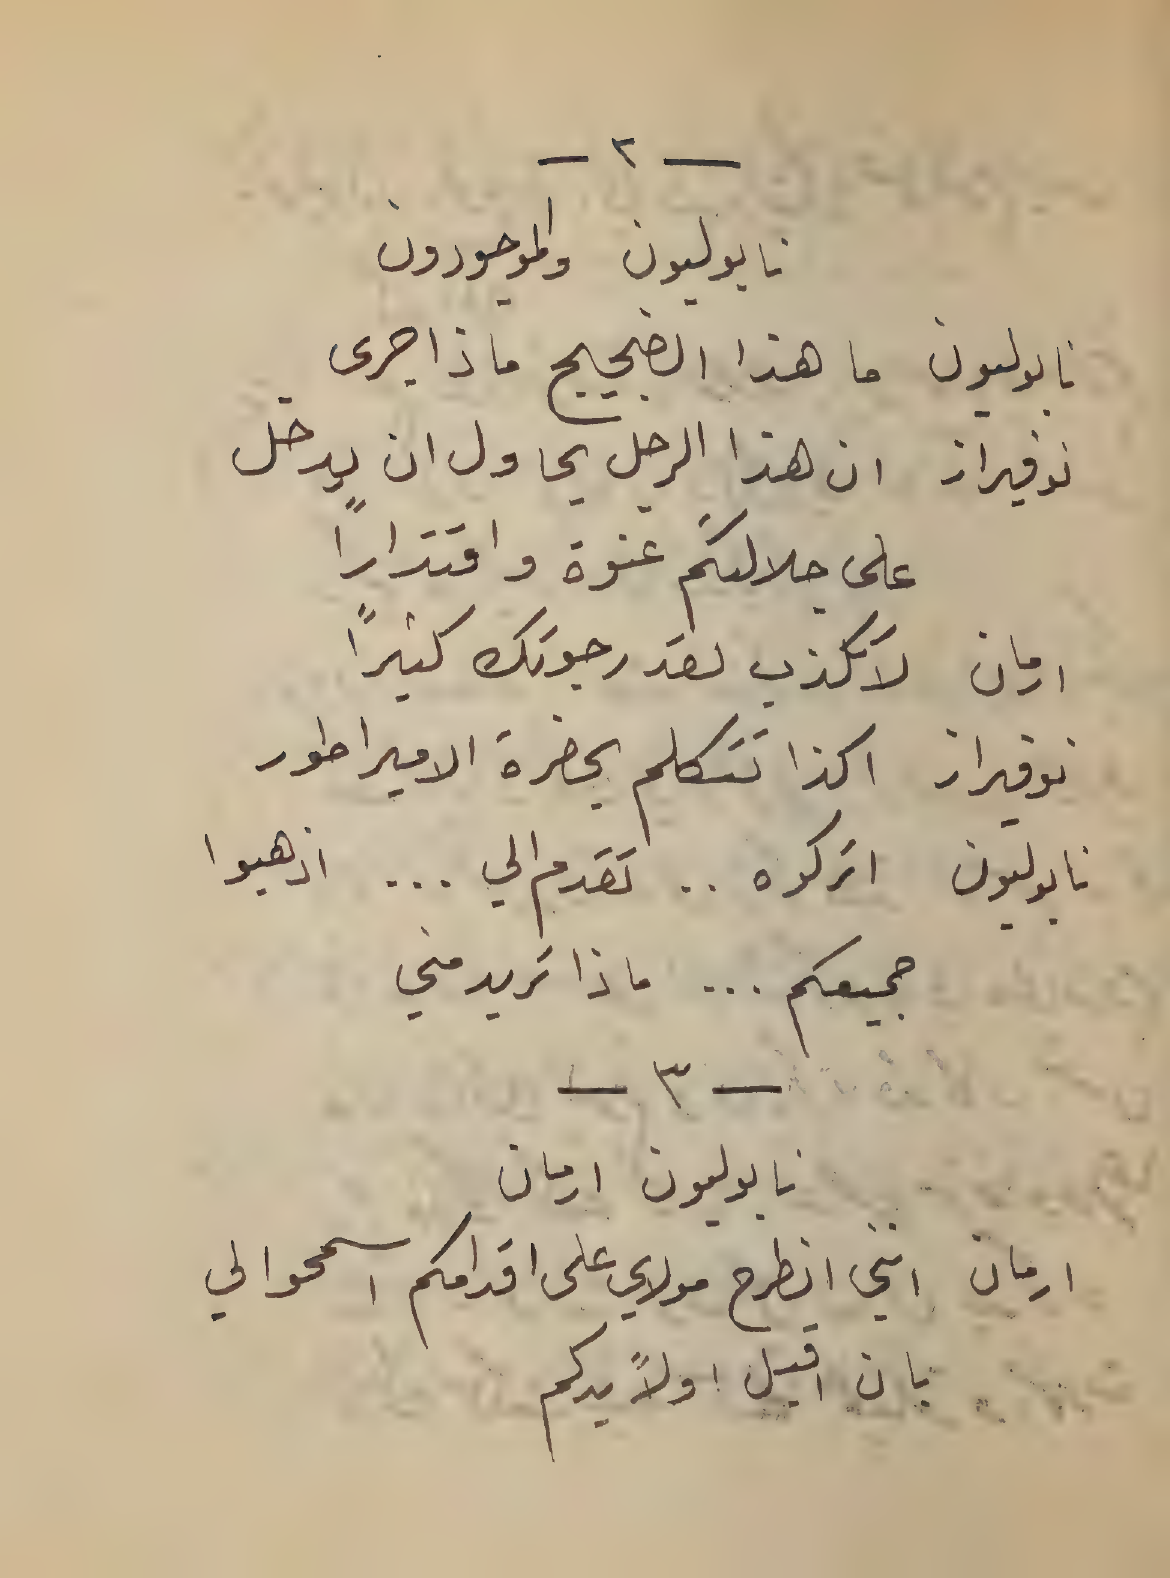 — ٢ —
نابوليون والموجودون
نابوليون ما هذا الضجيج ماذا جرى
نوفيراز ان هذا الرجل يحاول ان يدخل
على جلالتكم عنوة واقتدارًا
ارمان لا تكذب لقد رجوتك كثيرًا
نوفيراز اكذا تتكلم بحضرة الاميراطور
نابوليون اتركوه .. تقدم الي ... اذهبوا
جميعكم ... ماذا تريد مني
— ٣ —
نابوليون ارمان
ارمان انني انطرح مولاي على اقدامكم اسمحوا لي
بان اقبل اولاً يدكم